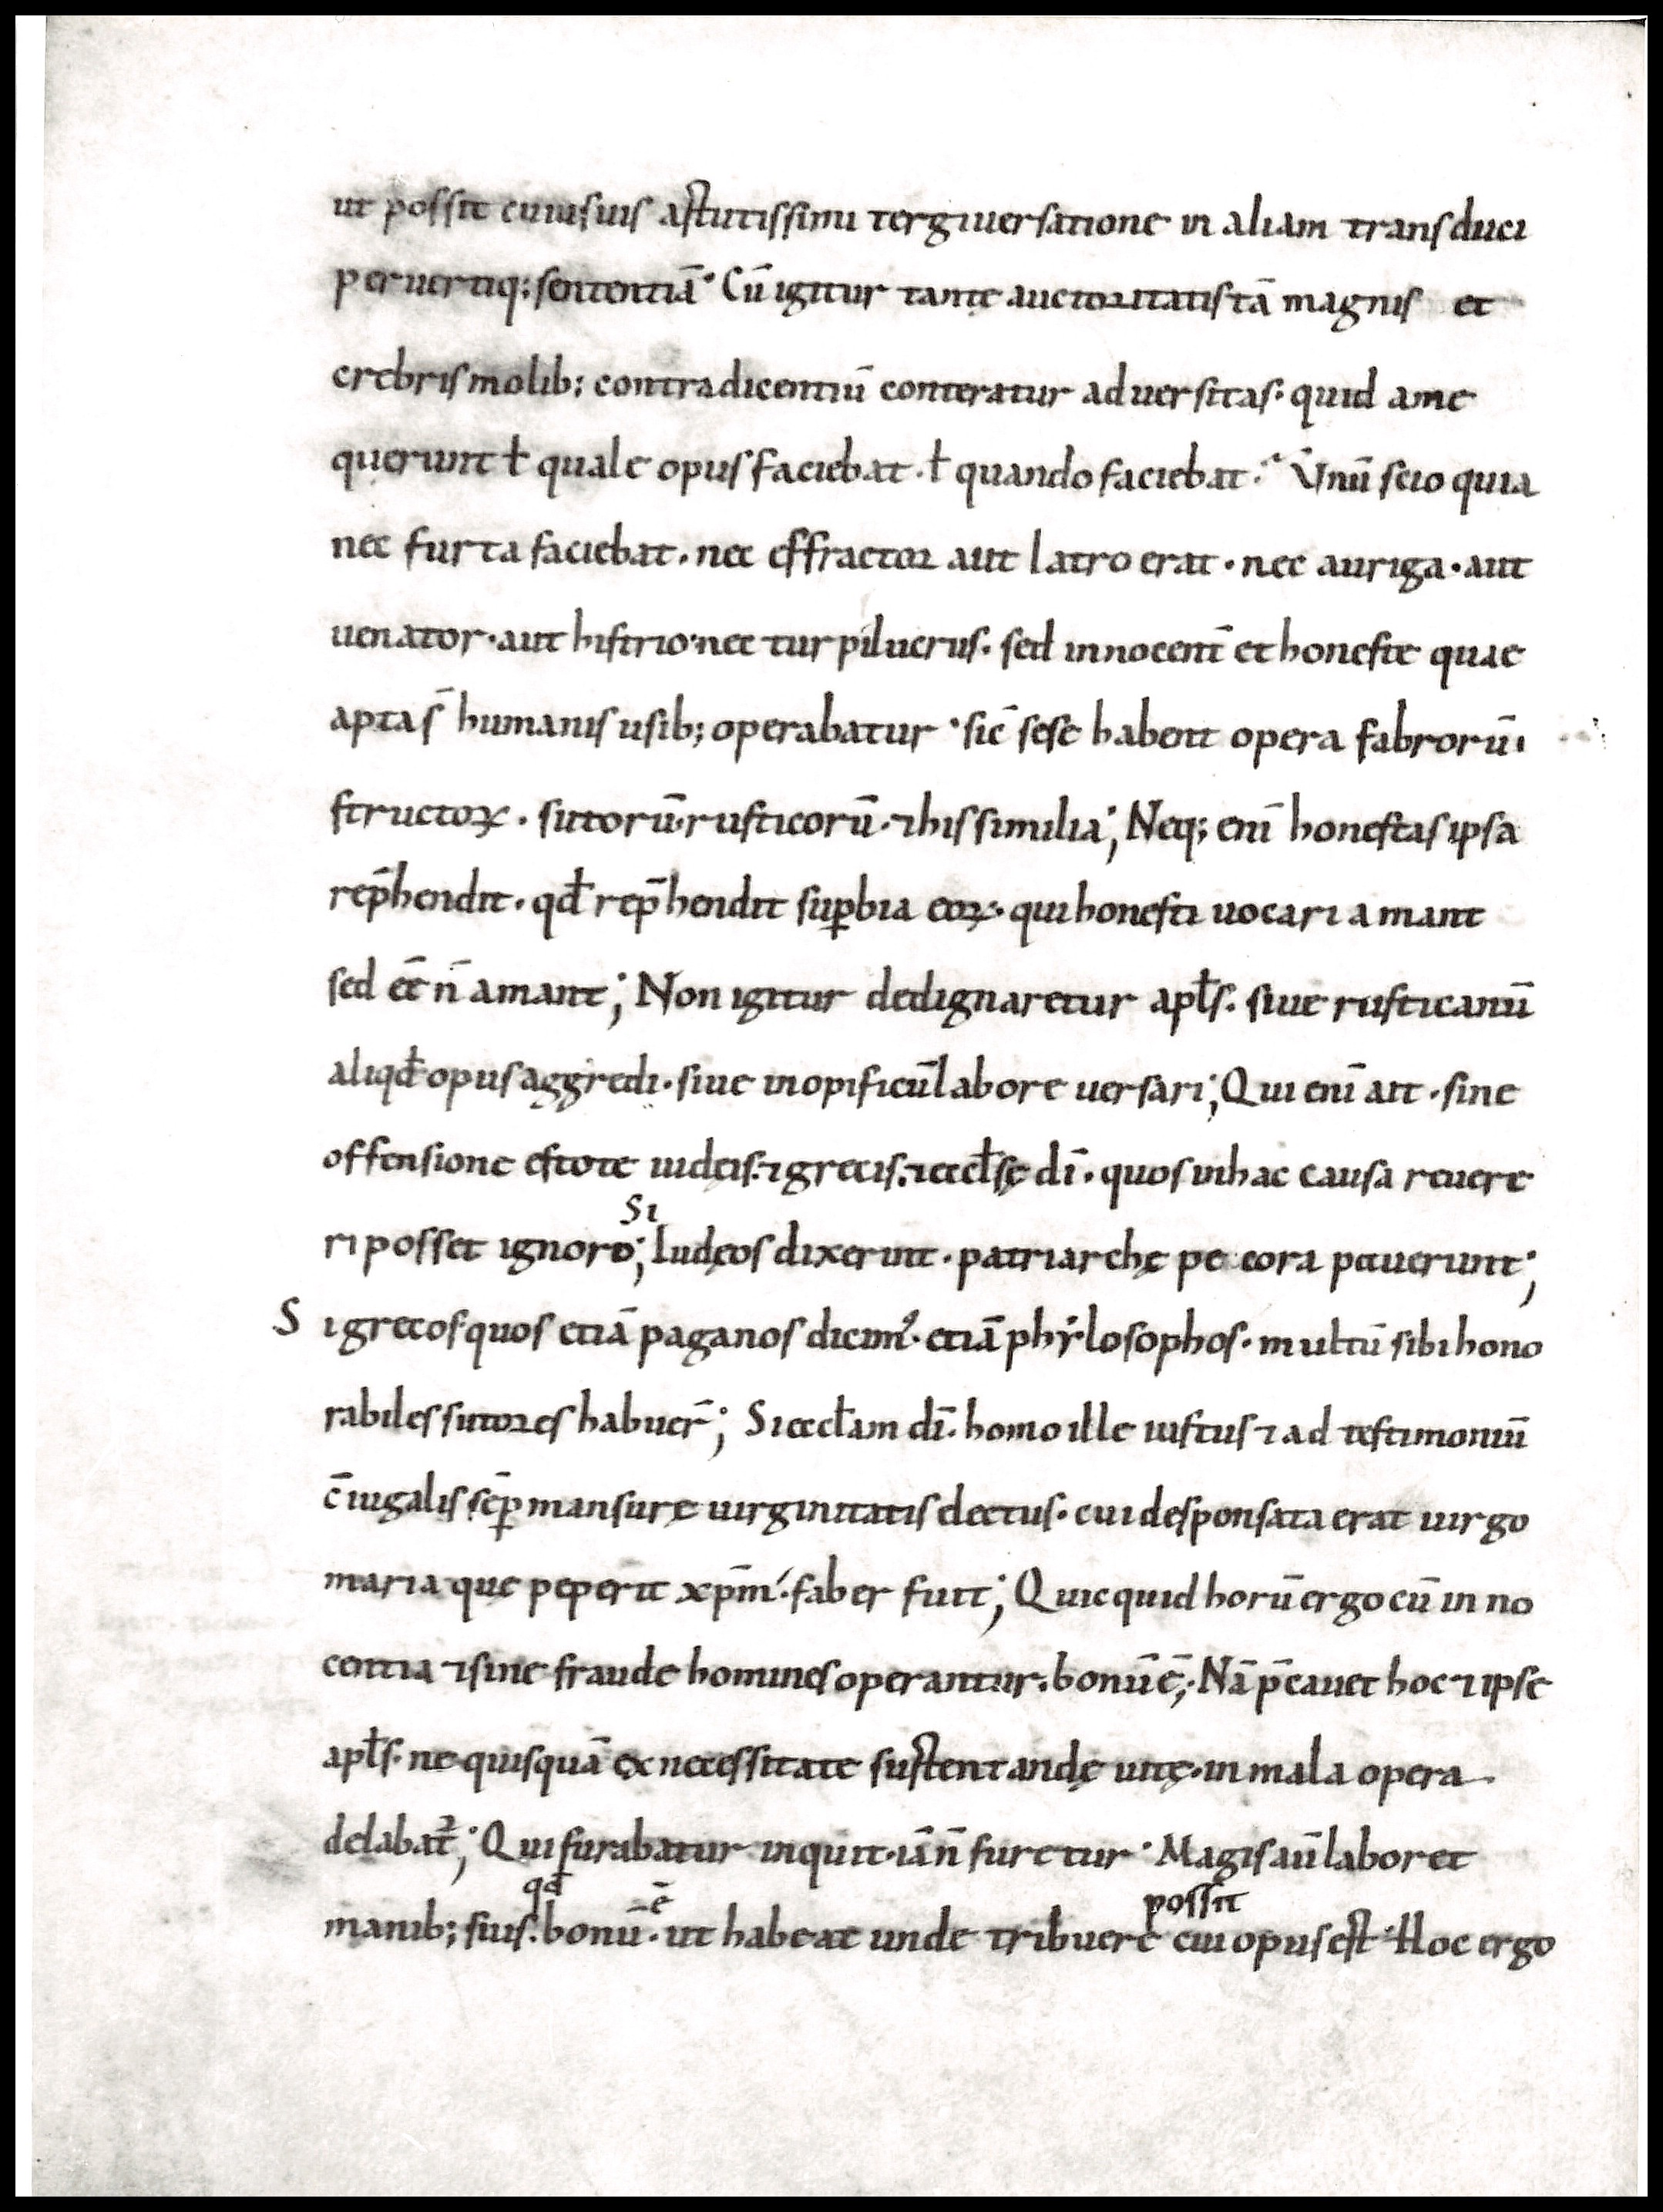 ut possit cuiusuis astutissimi tergiuersatione in aliam transduci
peruertiq; sententiā· Cū igitur tantę auctoritatis tā magnis et
crebris molib; contradicentiū conteratur aduersitas· quid a me
querunt ł quale opus faciebat· ł quando faciebat·̓ Vnū scio quia
nec furta faciebat· nec effractor aut latro erat· nec auriga· aut
uenator· aut histrio· nec turpilucrus· sed innocent̄ et honeste quae
apta s̄ humanis usib; operabatur· sic̄ sese habent opera fabrorū·
structoꝝ· sutorū· rusticorū· ⁊ his similia; Neq; eni honestas ipsa
rep̄hendit· qđ rep̄hendit sup̱bia eoꝝ· qui honesti uocari amant
sed eē n̄ amant; Non igitur dedignaretur apłs· siue rusticanū
aliqđ opus aggredi· siue in opificū labore uersari; Qui enī ait· sine
offensione estote iudęis· ⁊ grecis· ⁊ eccłsę dī· quos in hac causa reuere
ri posset ignoro; Si Iudęos dixerint· patriarchę pecora pauerunt;
Si grecos quos etiā paganos dicimꝰ· etiā phẏlosophos· multū sibi hono
rabiles sutores habuer̄; Si eccłam dī· homo ille iustus ⁊ ad testimoniū
c̄iugalis sēp̱ mansurę uirginitatis electus· cui desponsata erat uirgo
maria quę peperit xp̄m· faber fuit; Quicquid horū ergo cū inno
centia ⁊ sine fraude homines operantur· bonū ē; Nā p̄cauet hoc ⁊ ipse
apłs· ne quisquā ex necessitate sustentandę uitę· in mala opera
delabat᷑; Qui furabatur inquit· iā n̄ furetur· Magis aū laboret
manib; suis· qđ bonū ē· ut habeat unde tribuere possit cui opus est· Hoc ergo